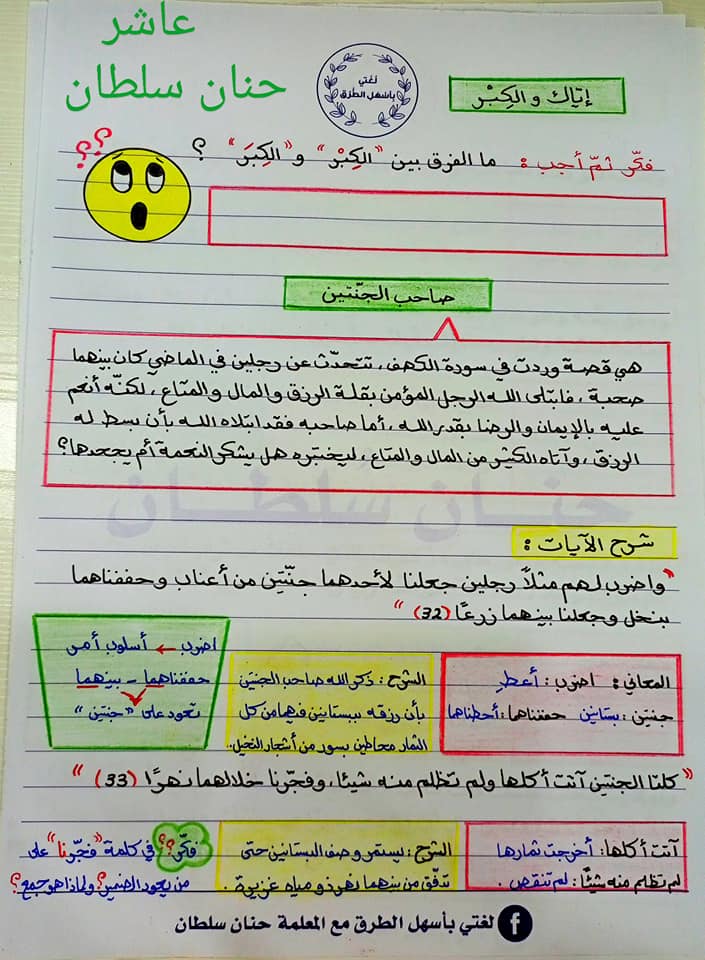 عاشر
حنان سلطان
لغتي
بأسهل الطرق
إيّاك و الكِبْر
فكّر ثمّ أجب : ما الفرق بين "الكِبْر" و "الكِبَر" ؟
؟؟
صاحب الجنّتين
هي قصة وردت في سورة الكهف ، تتحدّث عن رجلين في الماضي كان بينهما
صحبة ، فابتلى الله الرجل المؤمن بقلة الرزق والمال والمتاع ، لكنّه أنعم
عليه بالإيمان والرضا بقدر الله ، أما صاحبه فقد ابتلاه الله بأن بسط له
الرزق ، وآتاه الكثير من المال والمتاع ، ليختبره هل يشكر النعمة أم يجحدها؟
حنان سلطان
شرح الآيات :
"واضرب لهم مثلاً رجلين جعلنا لأحدهما جنّتين من أعناب وحففناهما
بنخل وجعلنا بينهما زرعًا (32) "
المعاني : اضرب : أعطِ
جنتين : بستانين حففناهما : أحطناهما
الشرح : ذكر الله صاحب الجنتين
بأن رزقه ببستانين فيهما من كل
الثمار محاطين بسور من أشجار النخيل.
اضرب ← أسلوب أمر
حففناهما - بينهما
تعود على "جنتين"
"كلتا الجنتين آتت أكلها ولم تظلم منه شيئا ، وفجّرنا خلالهما نهرًا (33) "
آتت أكلها : أخرجت ثمارها
لم تظلم منه شيئًا : لم تنقص .
الشرح : يستمر وصف البستانين حتى
تدفّق من بينهما نهر ذو مياه غزيرة .
فكّر؟؟ في كلمة "فجّرنا" على
من يعود الضمير؟ ولماذا هو جمع؟
لغتي بأسهل الطرق مع المعلمة حنان سلطان